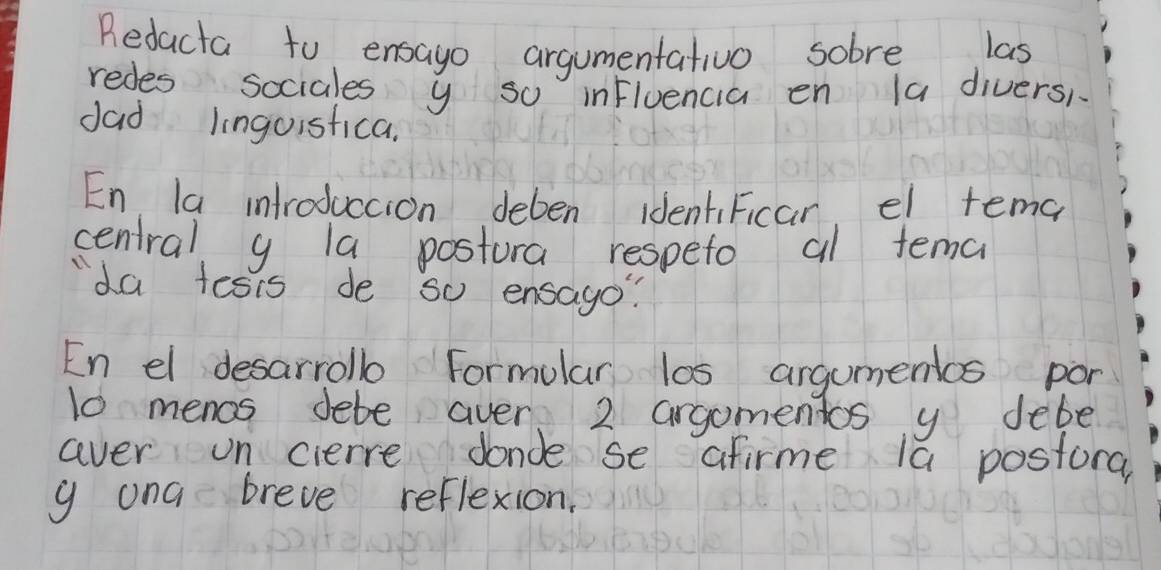 Redacta tu ensayo argumentativo sobre las
redes sociales y su influencia en la diversi-
dad linguistica.
En la introduccion deben identificar el tema
central y la postura respeto al tema
"La tesis de su ensayo".
En el desarrollo formular los argumentos por
lo menos debe aver 2 argumentos y debe
aver un cierre donde se afirme la postura,
y una breve reflexion.